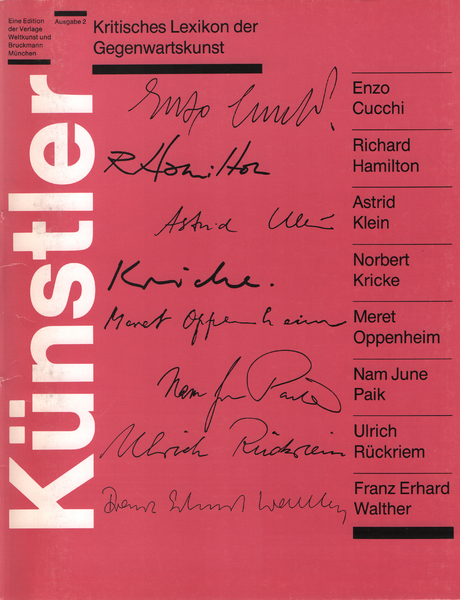 Eine Edition
der Verlage
Weltkunst und
Bruckmann
München
Ausgabe 2
Kritisches Lexikon der
Gegenwartskunst
Künstler
Enzo Cucchi
Enzo
Cucchi
R Hamilton
Richard
Hamilton
Astrid Klein
Astrid
Klein
Kricke.
Norbert
Kricke
Meret Oppenheim
Meret
Oppenheim
Nam June Paik
Nam June
Paik
Ulrich Rückriem
Ulrich
Rückriem
Franz Erhard Walther
Franz Erhard
Walther